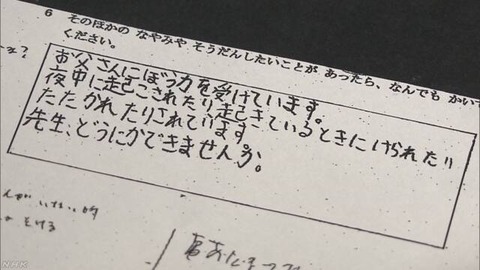 6 そのほかの なやみや そうだんしたいことが あったら、なんでも かいて
ください。
お父さんにぼう力を受けています。
夜中に起こされたり起きているときにけられたり
たたかれたりされています。
先生、どうにかできませんか。
NHK